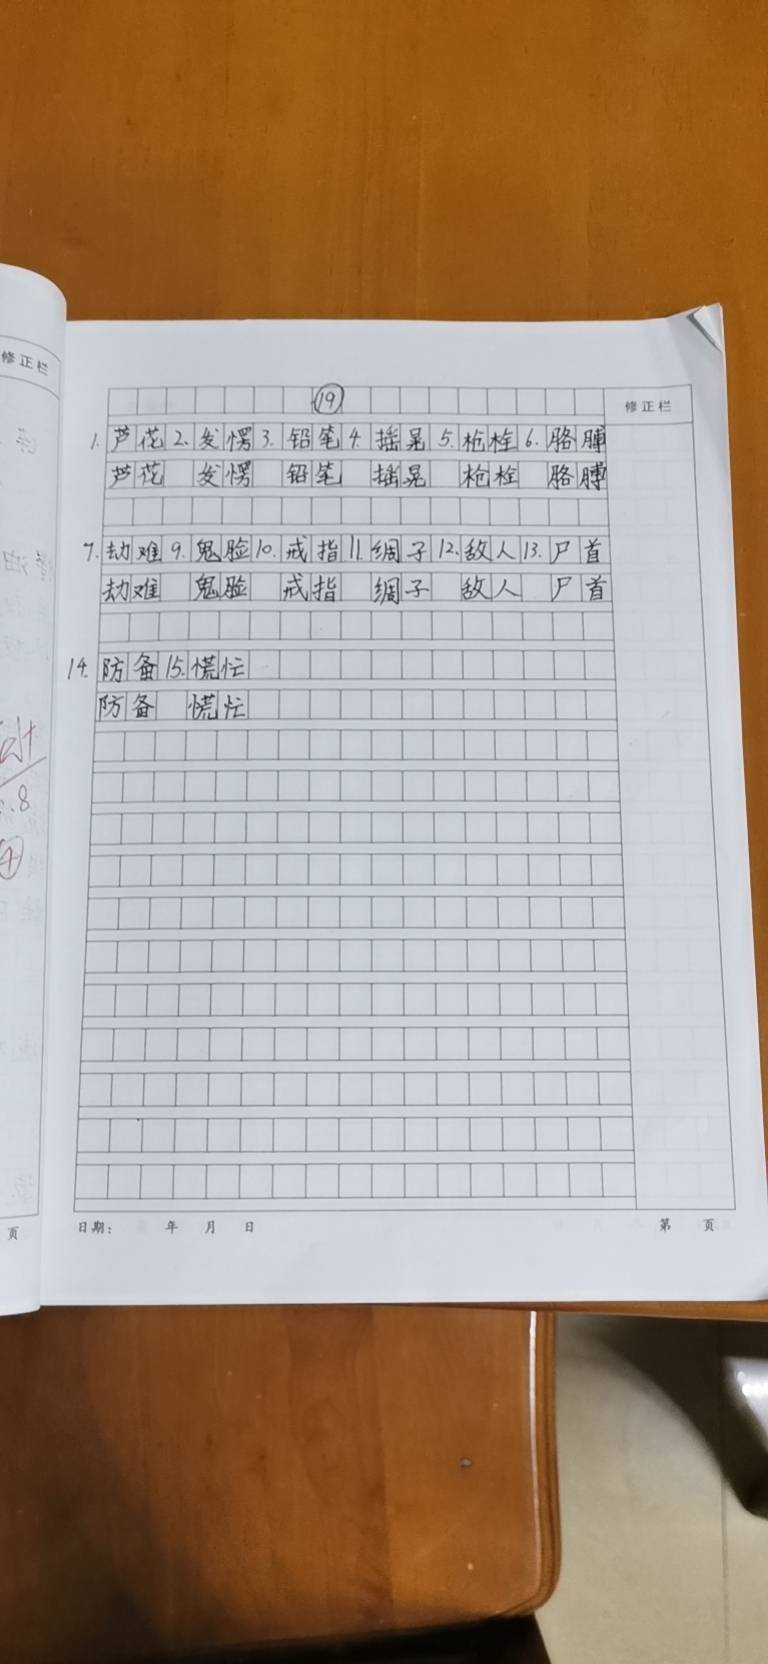 修正栏
⑲
修正栏
1. 芦花 2. 发愣 3. 铅笔 4. 摇晃 5. 枪栓 6. 胳膊
芦花 发愣 铅笔 摇晃 枪栓 胳膊
7. 劫难 9. 鬼脸 10. 戒指 11. 绸子 12. 敌人 13. 尸首
劫难 鬼脸 戒指 绸子 敌人 尸首
14. 防备 15. 慌忙
防备 慌忙
日期: 年 月 日
第 页
页